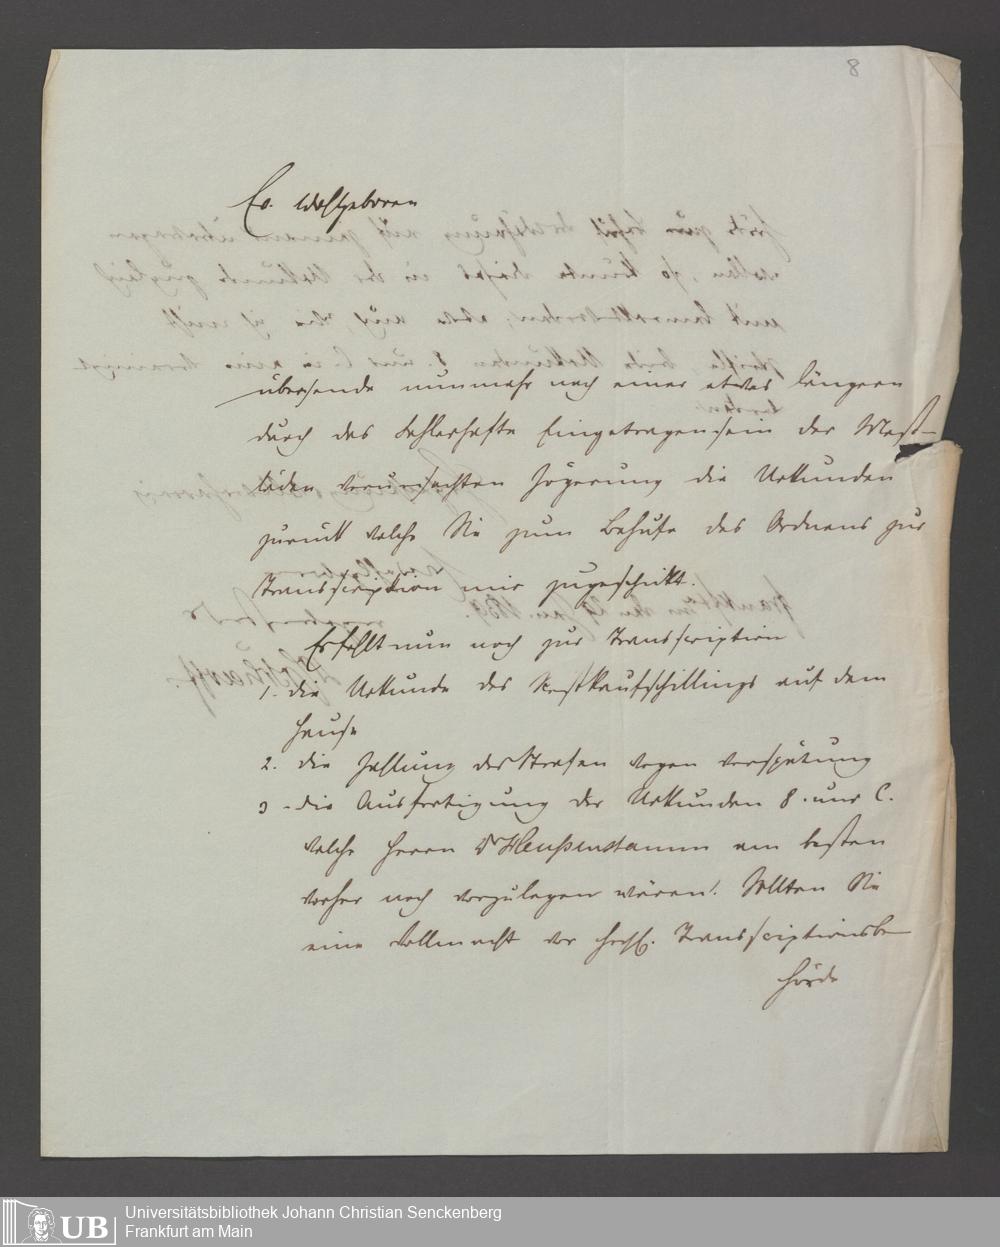 8
Ew. Wohlgeboren
übersende nunmehr nach einer etwas längern
durch das fehlerhafte Eingetragensein der Meß-
läden verursachten Zögerung die Urkunden
zurück welche Sie zum Behufe des Ordnens zur
Transcription mir zugeschikt.
Es fehlt nun noch zur Transcription
1. die Urkunde des Restkaufschillings auf dem
Hause
2. die Zahlung der Strafen wegen Verspätung
3 - die Ausfertigung der Urkunden B. und C.
welche Herrn Dr Heußenstamm am besten
vorher noch vorzulegen wären. Sollten Sie
eine Vollmacht vor Transcriptionsbe-
hörde
UB
Universitätsbibliothek Johann Christian Senckenberg
Frankfurt am Main